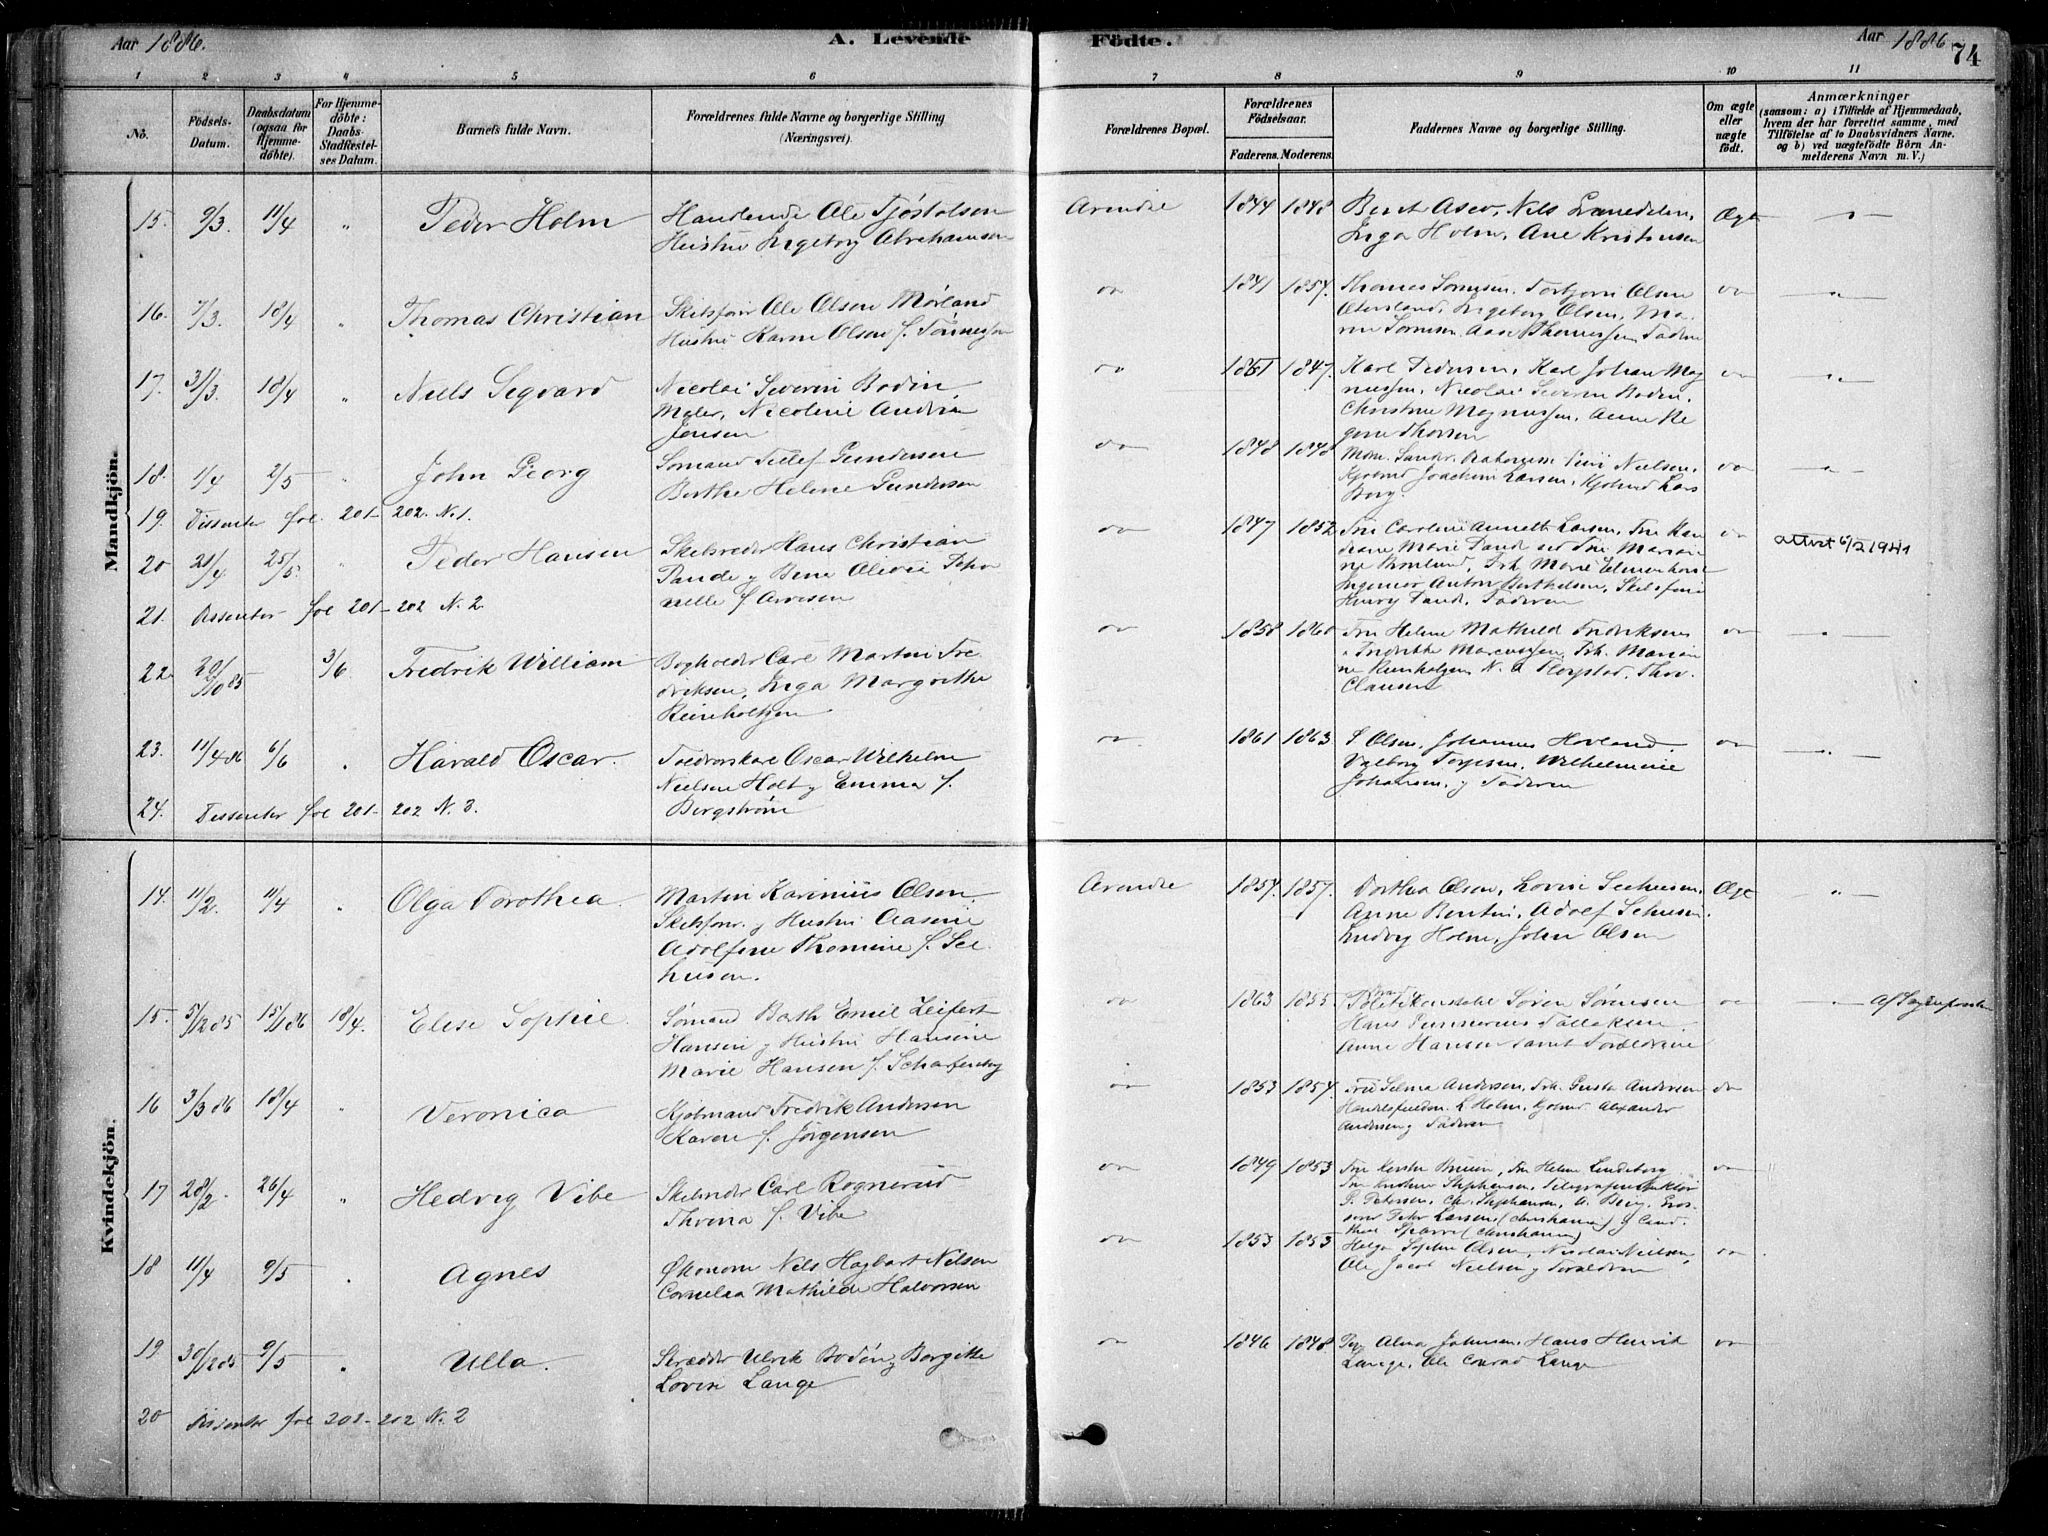 Aar 1886.
A. Levende
Födte.
Aar 1886
74
1 2 3 4 5 6 7 8 9 10 11
No.
Födsels-
Datum.
Daabsdatum
(ogsaa for
Hjemme-
döbte).
For Hjemme-
döbte:
Daabs-
Stadfæstel-
ses Datum.
Barnets fulde Navn.
Forældrenes fulde Navne og borgerlige Stilling
(Næringsvei).
Forældrenes Bopæl.
Forældrenes
Födselsaar.
Faderens. Moderens.
Faddernes Navne og borgerlige Stilling.
Om ægte
eller
uægte
födt.
Anmærkninger
(saasom: a) i Tilfælde af Hjemmedaab,
hvem der har forrettet samme, med
Tilföielse af to Daabsvidners Navne,
og b) ved uægtefödte Börn An-
melderens Navn m. V.)
Mandkjön.
15. 9/3. 11/4 " Peder Holm
Handlende Ole Tjöstolsen
Hustru Ingeborg Abrahamsen
Arendal 1844 1848
Bent Aseo, Nils
Inga Holm, Ane Kristensen
Ægte
16. 7/3. 18/4 " Thomas Christian
Skibsförer Ole Olsen Mörland
Hustru Karen Olsen f. Tönnesen
1841 1854.
Thomas Sörensen, Torbjörn Olsen
Ingeborg Olsen, Ma-
Sörensen, Aase Thomessen, Faderen
17. 31/3. 18/4 " Niels Sigvard
Nicolai Severin Bodin,
Maler, Nicoline Andrea
Jensen
1851 1847.
Karl Pedersen, Karl Johan Mag
nussen, Nicolai Severin Bodin,
Christine Magnussen, Anne Re
gine Thorsen
18. 1/4 2/5 " John Georg
Sömand Tellef Gundersen
Berthe Helene Gundersen
1848 1848
Nielsen,
Kjöbmd Joachim Larsen, Kjöbmd Lars
Borg.
19. Dissenter fol. 201-202. N. 1.
20 21/4 25/5. " Peder Hansen
Skibsreder Hans Christian
Pande og Bene Olivie Petro
nelle f Arvesen
1847 1852
Fru Caroline Annette Larsen, Fru Kar
Marie Pande
Frk Marie
Ingeniör Anton Berthelsen, Skibsförer
Henry Pande, Faderen
attest 6/2 1941
21. Dissenter fol 201-202 N. 2.
22. 20/10 85 3/6 Fredrik William
Bogholder Carl Martin Fre
driksen, Inga Margrethe
Reinholtzen
1858 1860
Fru Helene Mathild Fredriksen
Fredrikke Marcussen, Frk. Marian
ne Reinholtzen, N. A. Thor.
Clausen
23. 11/4 86 6/6 " Harald Oscar.
Oscar Wilhelm
Nielsen Holt og Emma f.
Bergström
1861 1863
S Olsen, Johannes Hovland
Valborg Wilhelmine
Johansen, og Faderen
24. Dissenter fol 201-202 N. 3.
Kvindekjön.
14. 11/2. 11/4 " Olga Dorothea.
Martin Karinius Olsen
Skibsförer. og Hustru Aasine
Adolfine Thomine f. See
husen.
Arendal 1854. 1857.
Dorthea Olsen, Lovise Seehusen,
Anne Bentsen, Adolf
Ludvig Holm, John Olsen
Ægte
15. 5/12 85 15/1 86 18/4. Elise Sophie
Sömand Barth Emil Leifert
Hansen og Hustru Hansine
Marie Hansen f. Scharfenberg
1863 1855
Politikonstabel Sören Sörensen
Hans Tallaksen
Anne Hansen samt Forældrene
16 3/3 86 18/4 " Veronica
Kjöbmand Fredrik Andersen
Karen f. Jörgensen
1853 1854.
Fru Selma Andersen, Frk. Gusta Andersen
L Holm, Kjöbmd Alexander
Andersen og Faderen
17 28/2. 26/4 " Hedvig Vibe
Skibsreder Carl Rognerud
Throna f. Vibe
1849 1853
Fru Kirstin Fru Helene Lindeborg
Fru Kristine Stephansen, Telegrafinspektör
P. Petersen, Chr. Stephansen, A. Gros-
serer Peter Larsen (Christiania) og Cand.
theol (Christiania)
18 11/4 9/5 " Agnes
Ökonom Nils Hagbart Nilsen
Cornelia Mathilde Halvorsen
1853 1853
Helga Sophie Olsen, Nicolai Nielsen,
Ole Jacob Nielsen og Forældrene
19 30/12 85 9/5 " Ulla.
Skrædder Ulrik Bodén og Bergitte
Lovise Lange
1846 1848
Alma Johnsen, Hans Henrik
Lange, Ole Conrad Lange
20 Dissenter fol 201-202 N. 2